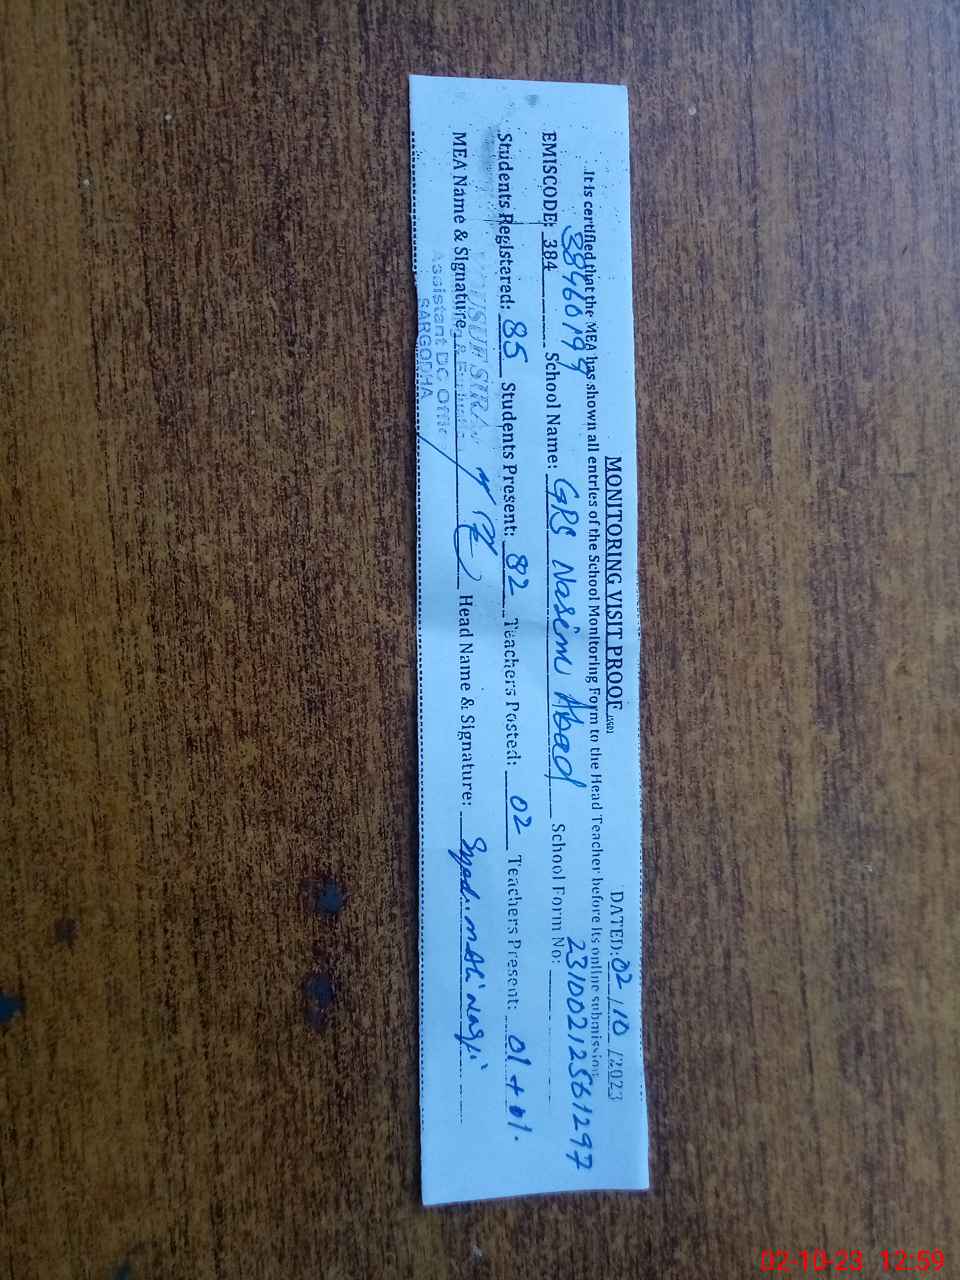 MONITORING VISIT PROOF DATED: 02/10/2023
It is certified that the MEA has shown all entries of the School Monitoring Form to the Head Teacher before its online submission.
38460199 231002125612 97
EMISCODE: 384 School Name: GPS Nasim Abad School Form No:
Students Registered: 85 Students Present: 82 Teachers Posted: 02 Teachers Present: 01 + 01.
MEA Name & Signature Head Name & Signature:
Assistant DC Office
SARGODHA
02-10-23 12:59